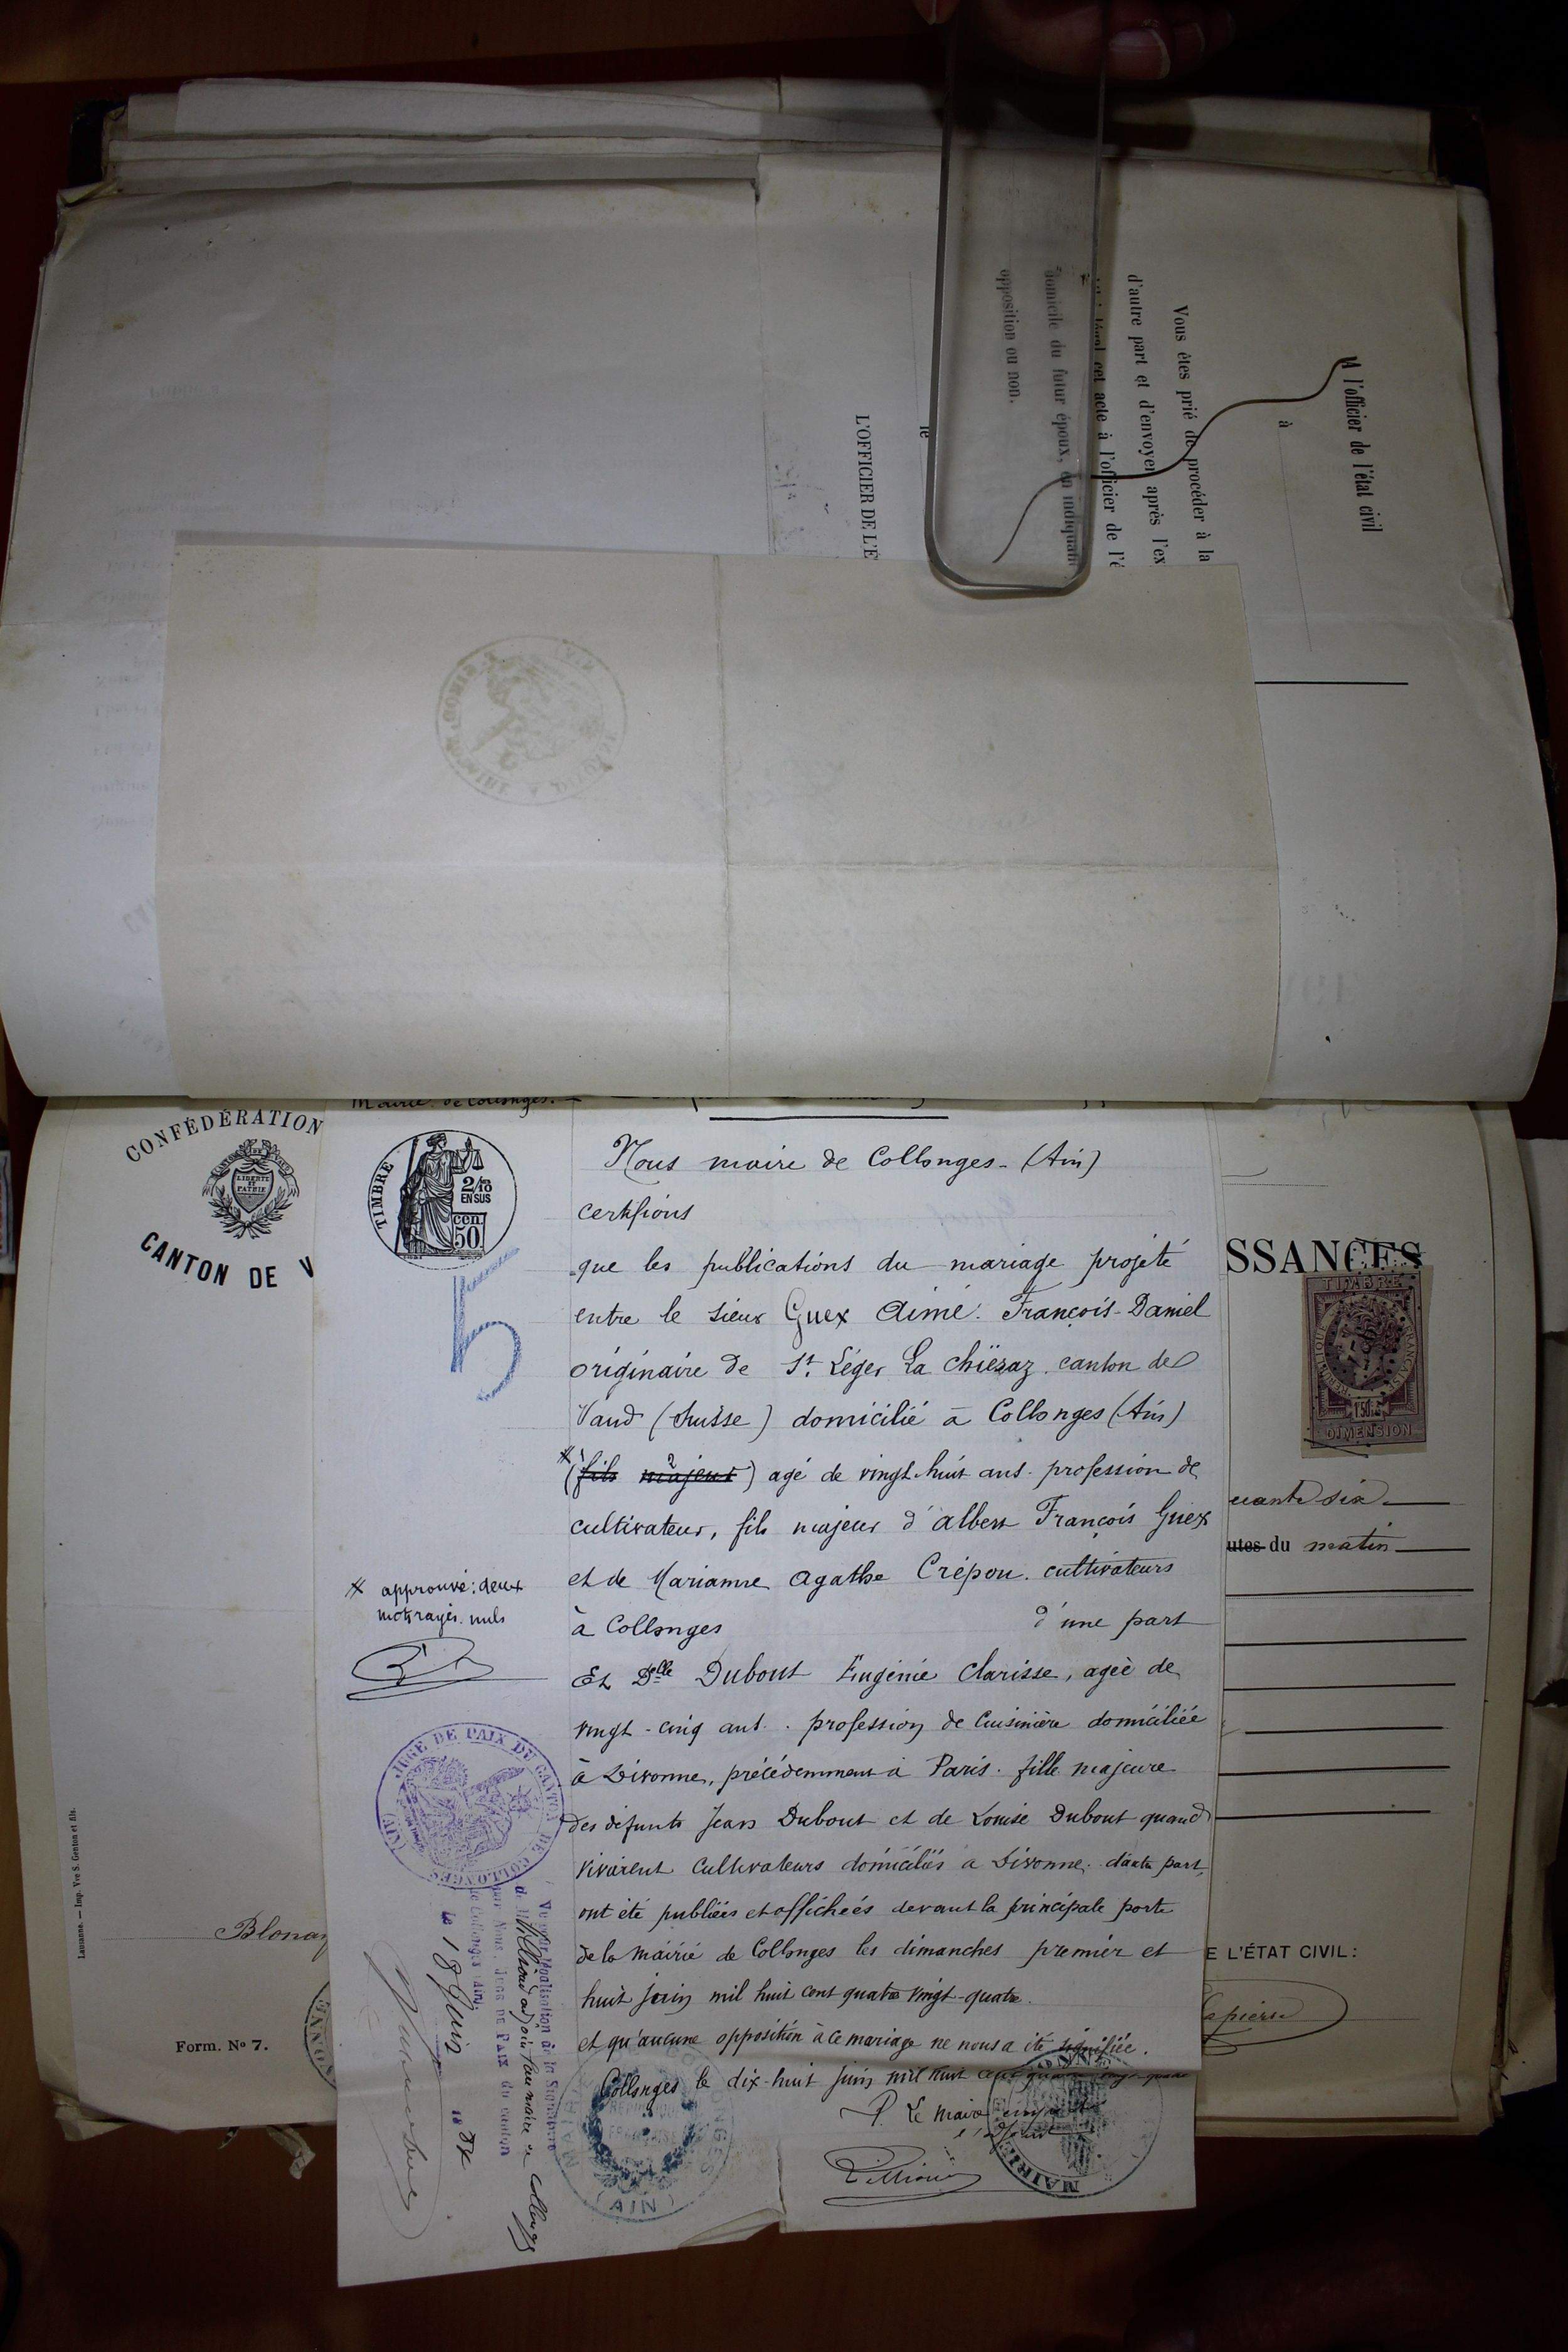 A l'officier de l'état civil
à
Vous êtes prié de procéder à la
d'autre part et d'envoyer après l'ex
légal cet acte à l'officier de l'é
domicile du futur époux, en indiquant
opposition ou non.
le
L'OFFICIER DE L'É
Mairie de Collonges.
CONFÉDÉRATION
LIBERTÉ ET PATRIE
CANTON DE V
TIMBRE
2/10
EN SUS
50 cen
5
Nous maire de Collonges - (Ain)
certifions
que les publications du mariage projeté
entre le sieur Guex Aimé François-Daniel
originaire de St Léger La Chiésaz canton de
Vaud (Suisse) domicilié à Collonges (Ain)
(fils majeur) agé de vingt-huit ans. profession de
cultivateur, fils majeur d'Albert François Guex
et de Marianne Agathe Crépon. cultivateurs
à Collonges d'une part
Et Delle Dubout Eugénie Clarisse, ageè de
vingt-cinq ans. profession de Cuisinière domiciliée
à Divonne, précédemment à Paris. fille majeure
des défunts Jean Dubout et de Louise Dubout quand
vivaient Cultivateurs domiciliés à Divonne. d'autre part,
ont été publiées et affichées devant la principale porte
de la mairie de Collonges les dimanches premier et
huit juin mil huit cent quatre vingt-quatre.
et qu'aucune opposition à ce mariage ne nous a été signifiée.
Collonges le dix-huit juin mil huit cent quatre vingt-quatre
P. Le Maire
l'adjoint
approuvé: deux
mots rayés nuls
JUGE DE PAIX DU CANTON DE COLLONGES (AIN)
Vu pour légalisation de la Signature
de M adjoint au maire de Collonges
par Nous, JUGE DE PAIX du canton
de Collonges (Ain).
Le 18 Juin 1884
(AIN)
MAIRIE
SSANCES
TIMBRE
RÉPUBLIQUE FRANÇAISE
1f50c
DIMENSION
uante six
utes du matin
E L'ÉTAT CIVIL:
Lausanne. — Imp. Vve S. Genton et fils.
Blonay
Form. No 7.